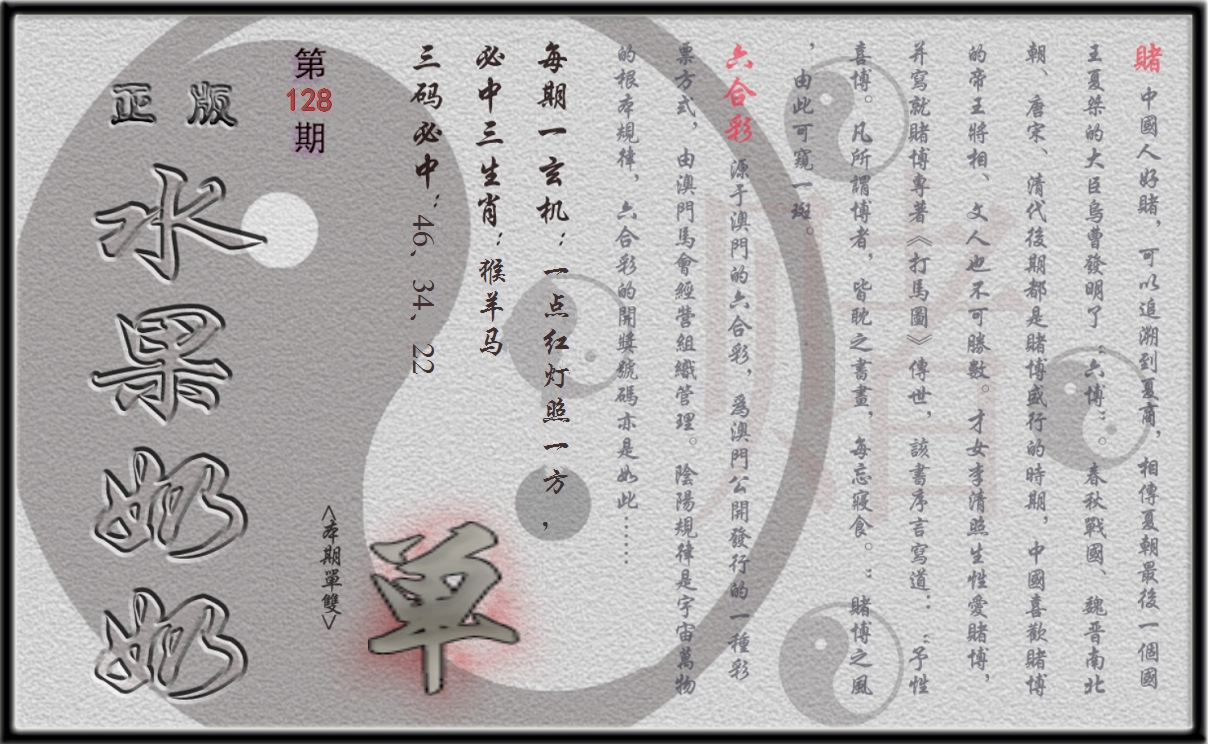 賭 中國人好賭，可以追溯到夏商，相傳夏朝最後一個國
王夏桀的大臣烏曹發明了“六博”。春秋戰國、魏晉南北
朝、唐宋、清代後期都是賭博盛行的時期，中國喜歡賭博
的帝王將相、文人也不可勝數。才女李清照生性愛賭博，
并寫就賭博專著《打馬圖》傳世，該書序言寫道：“予性
喜博。凡所謂博者，皆耽之書畫，每忘寢食。：賭博之風
，由此可窺一斑。
六合彩 源于澳門的六合彩，為澳門公開發行的一種彩
票方式，由澳門馬會經營組織管理。陰陽規律是宇宙萬物
的根本規律，六合彩的開獎號碼亦是如此……
每期一玄机：一点红灯照一方，
必中三生肖：猴羊马
三码必中：46，34，22
单
<本期單雙>
第128期
正版
水果奶奶
赌